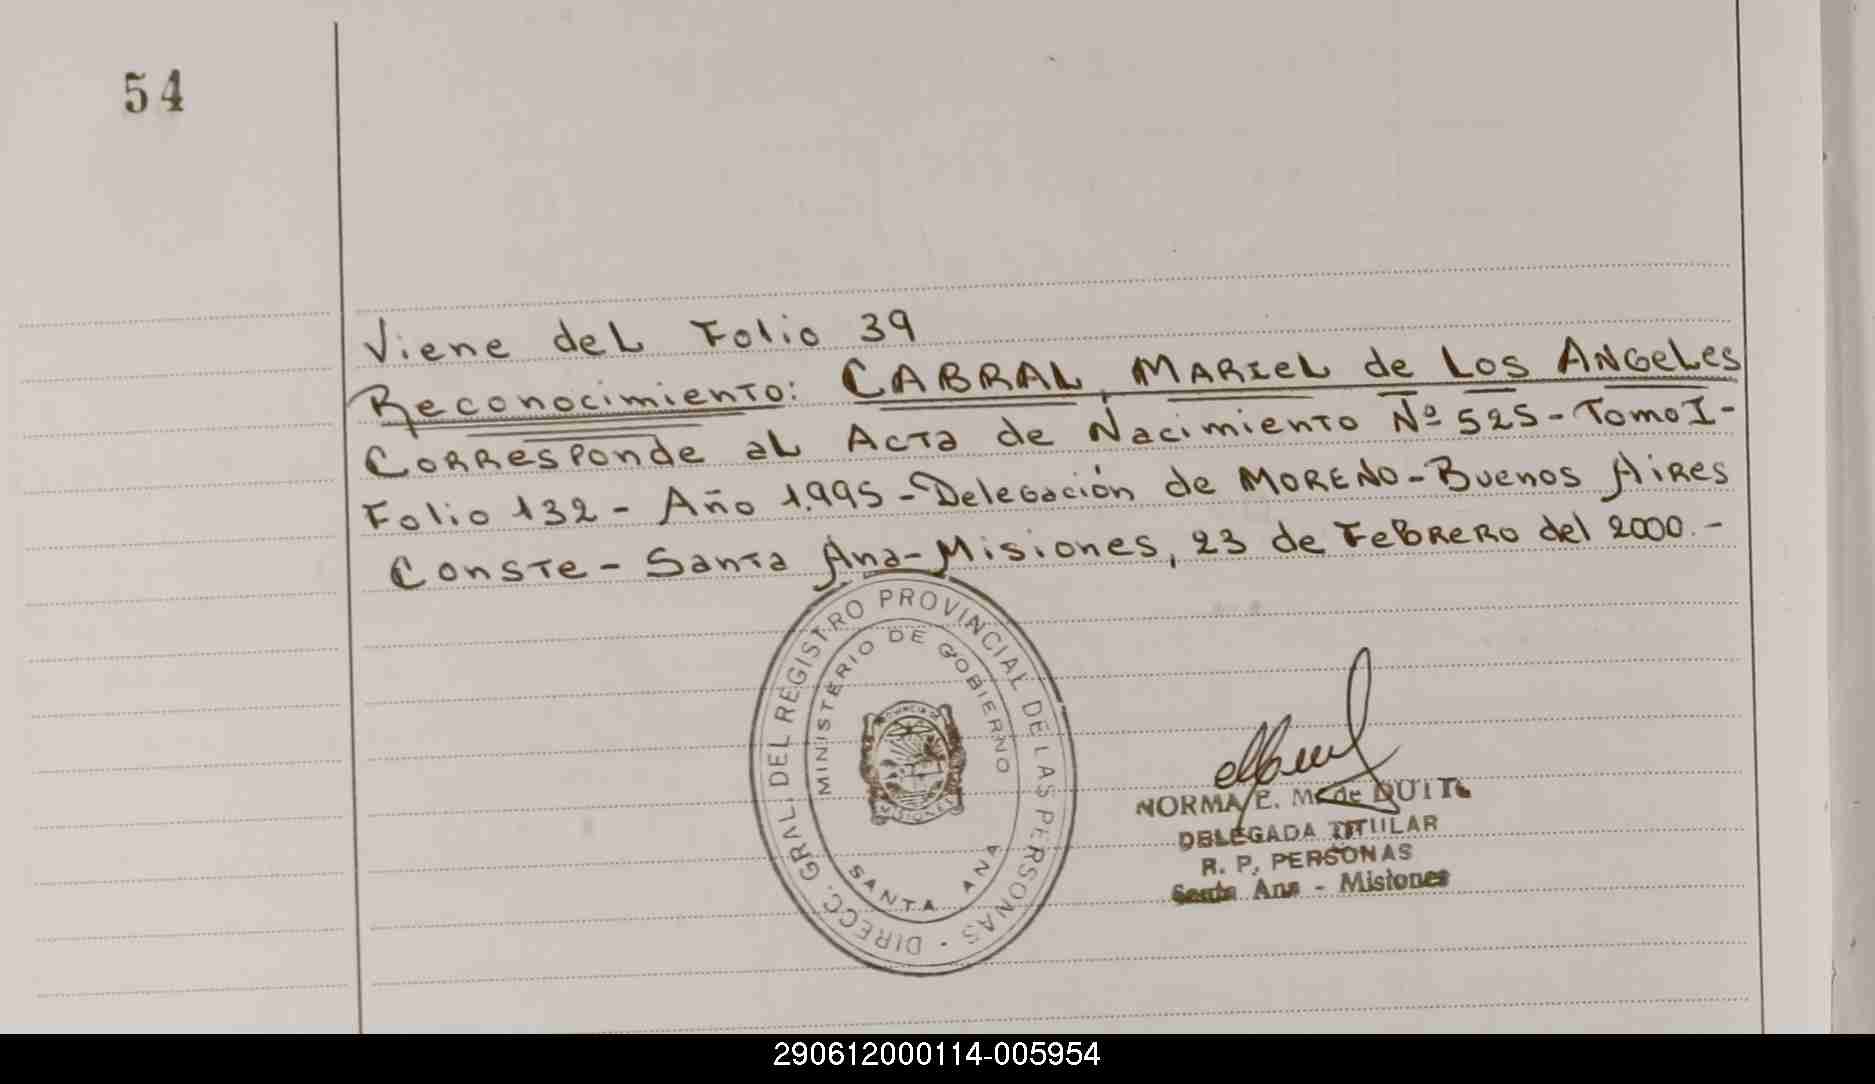 54
Viene del Folio 39
Reconocimiento: CABRAL, MARIEL de Los ANGeLes
Corresponde al Acta de Nacimiento Nº 525 - Tomo I -
Folio 132 - Año 1.995 - Delegación de MORENO - Buenos Aires
Conste - Santa Ana - Misiones, 23 de Febrero del 2000. -
DIRECC. GRAL. DEL REGISTRO PROVINCIAL DE LAS PERSONAS -
MINISTERIO DE GOBIERNO
PROVINCIA DE
MISIONES
SANTA ANA
NORMA E. M. de DUIT
DELEGADA TITULAR
R. P. PERSONAS
Santa Ana - Misiones
290612000114-005954